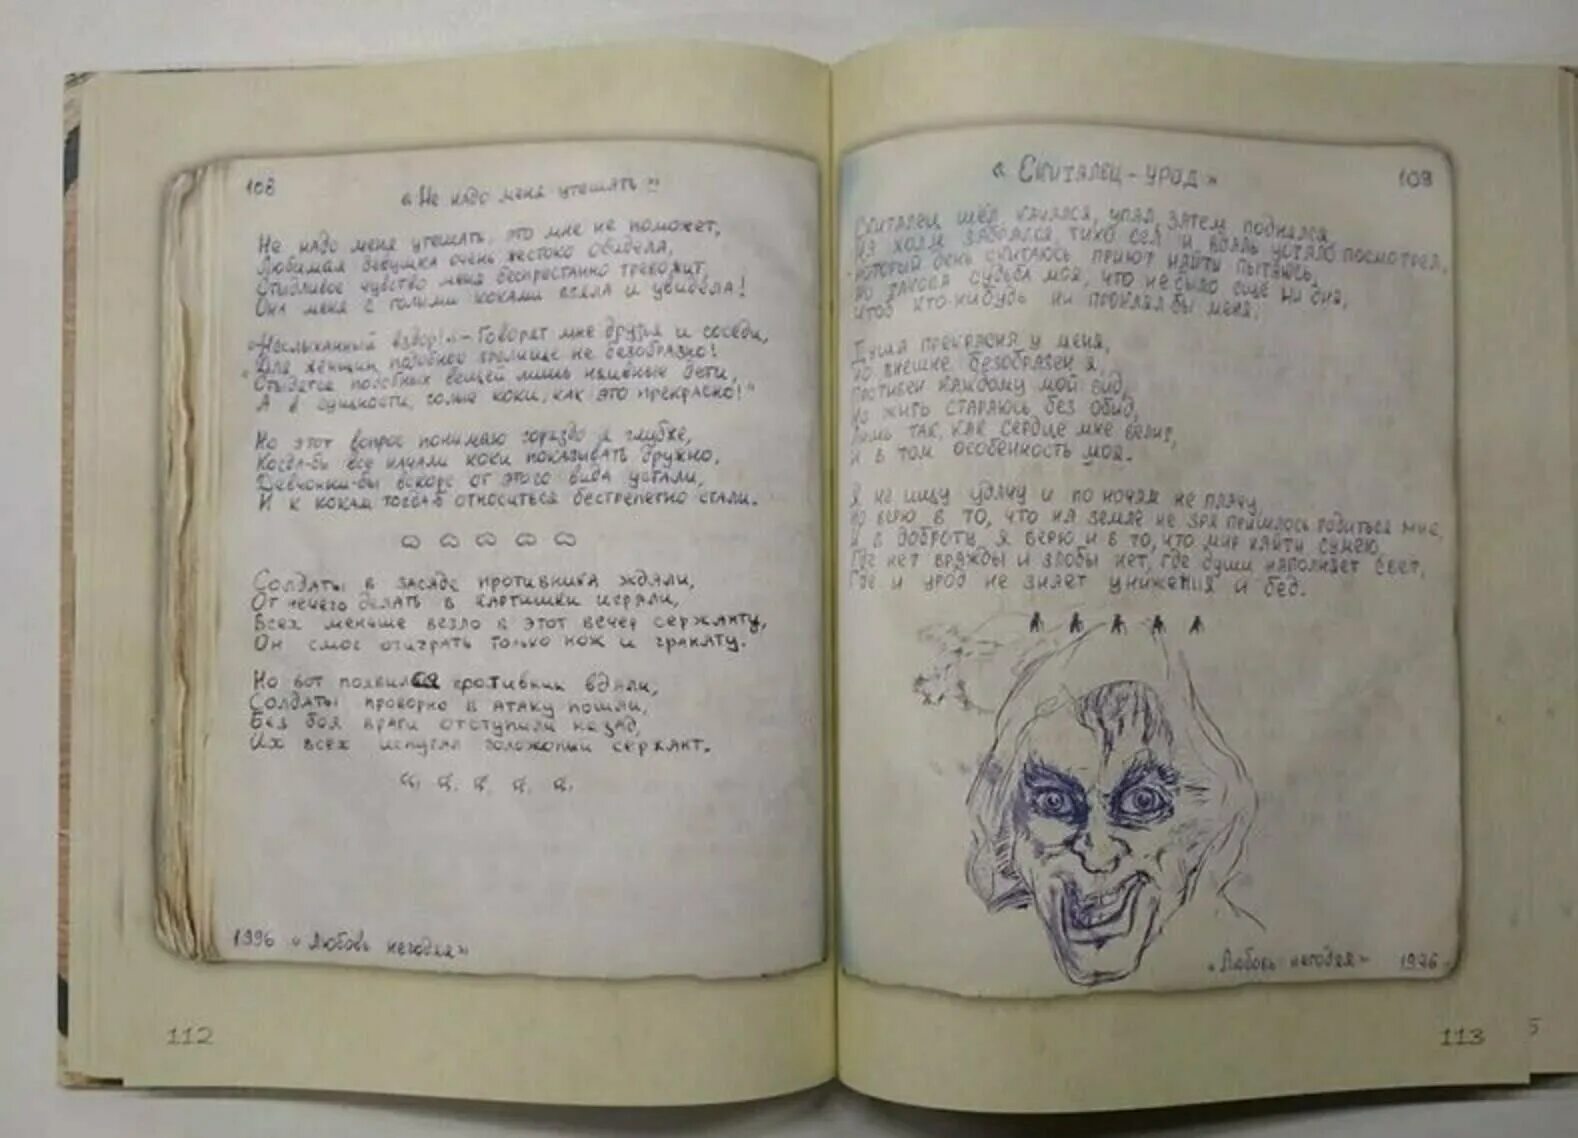 108
«Не надо меня утешать»
Не надо меня утешать, это мне не поможет,
Любимая девушка очень жестоко обидела,
Стыдливое чувство меня беспрестанно тревожит,
Она меня с голыми коками взяла и увидела!
«Неслыханный вздор!» - Говорят мне друзья и соседи,
"Для женщин подобное зрелище не безобразно!
"Стыдятся подобных вещей лишь наивные дети,
А в сущности, голые коки, как это прекрасно!"
Но этот вопрос понимаю гораздо я глубже,
Когда-бы все начали коки показывать дружно,
Девчонки-бы вскоре от этого вида устали,
И к кокам тогда-б относиться бестрепетно стали.
Солдаты в засаде противника ждали,
От нечего делать в картишки играли,
Всех меньше везло в этот вечер сержанту,
Он смог отыграть только нож и гранату.
Но вот появился противник вдали,
Солдаты проворно в атаку пошли,
Без боя враги отступили назад,
Их всех испугал голожопый сержант.
1996 «Любовь негодяя»
112
«Скиталец-урод»
109
Скиталец шёл, качался, упал, затем поднялся,
На холм забрался, тихо сел и вдаль устало посмотрел,
-Который день скитаюсь, приют найти пытаюсь,
Но такова судьба моя, что не было ещё ни дня,
Чтоб кто-нибудь не проклял бы меня.
Душа прекрасна у меня,
Но внешне безобразен я,
Противен каждому мой вид,
Но жить стараюсь без обид,
Лишь так, как сердце мне велит,
И в том особенность моя.
Я не ищу удачу и по ночам не плачу,
Но верю в то, что на земле не зря пришлось родиться мне,
И в доброту я верю и в то, что мир найти сумею,
Где нет вражды и злобы нет, где души наполняет свет,
Где и урод не знает унижения и бед.
«Любовь негодяя» 1996
113
5